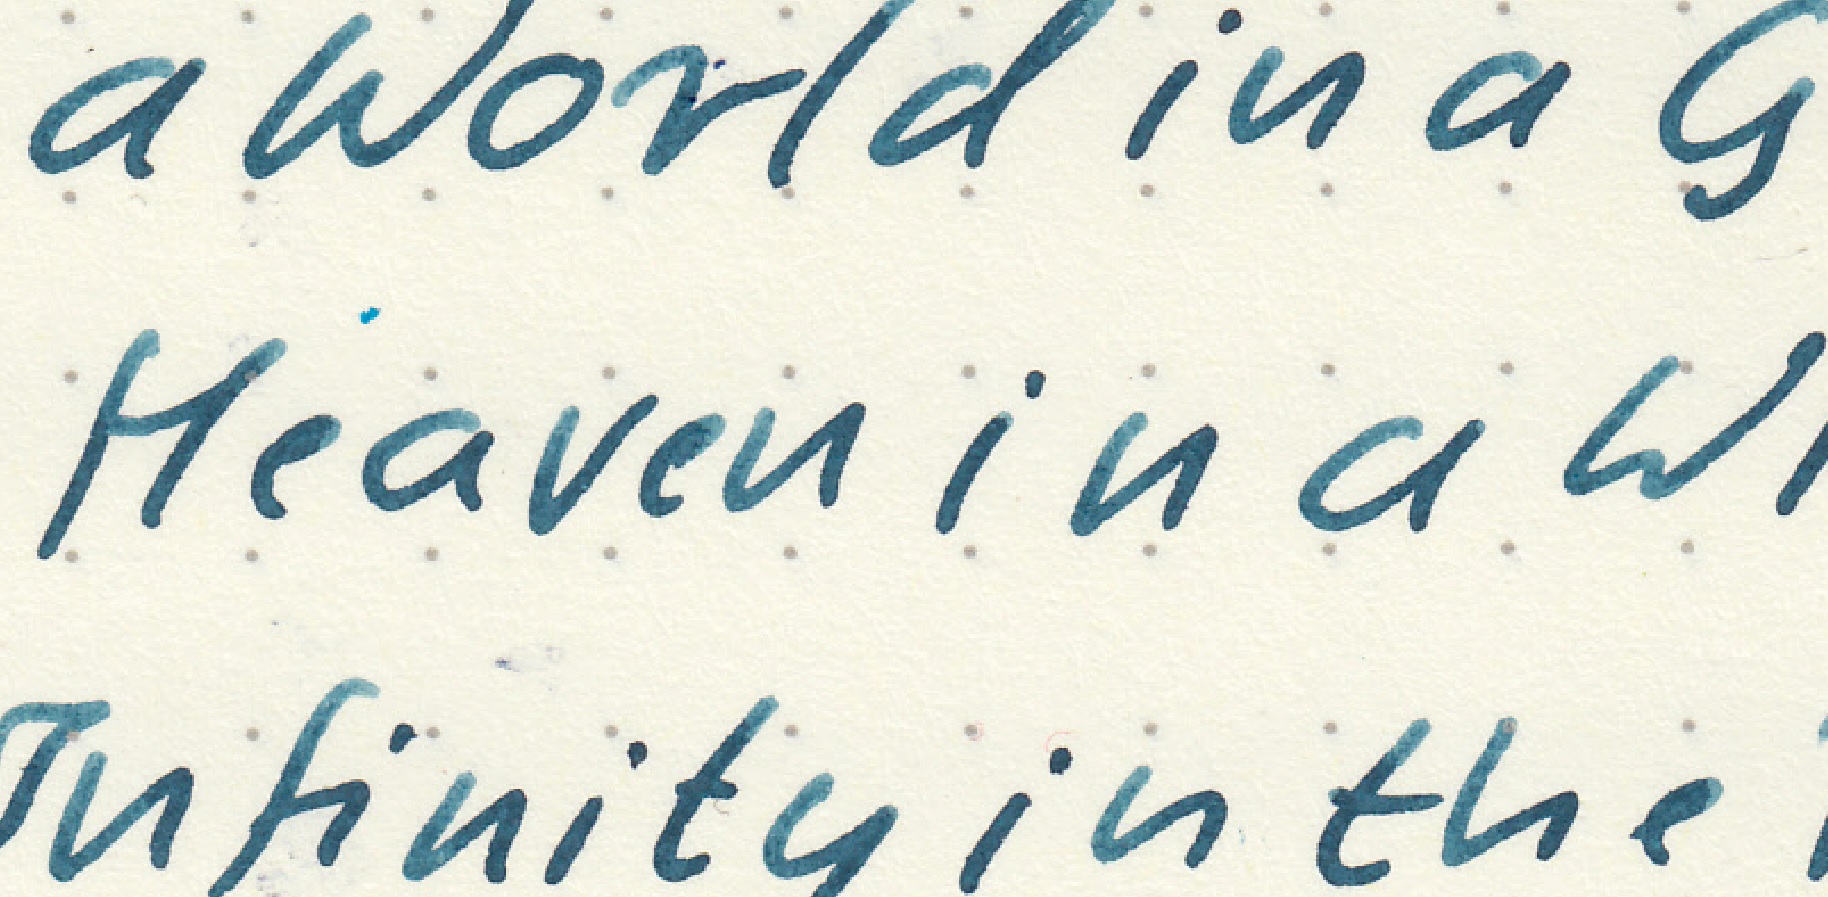 a World in a G
Heaven in a Wi
Infinity in the